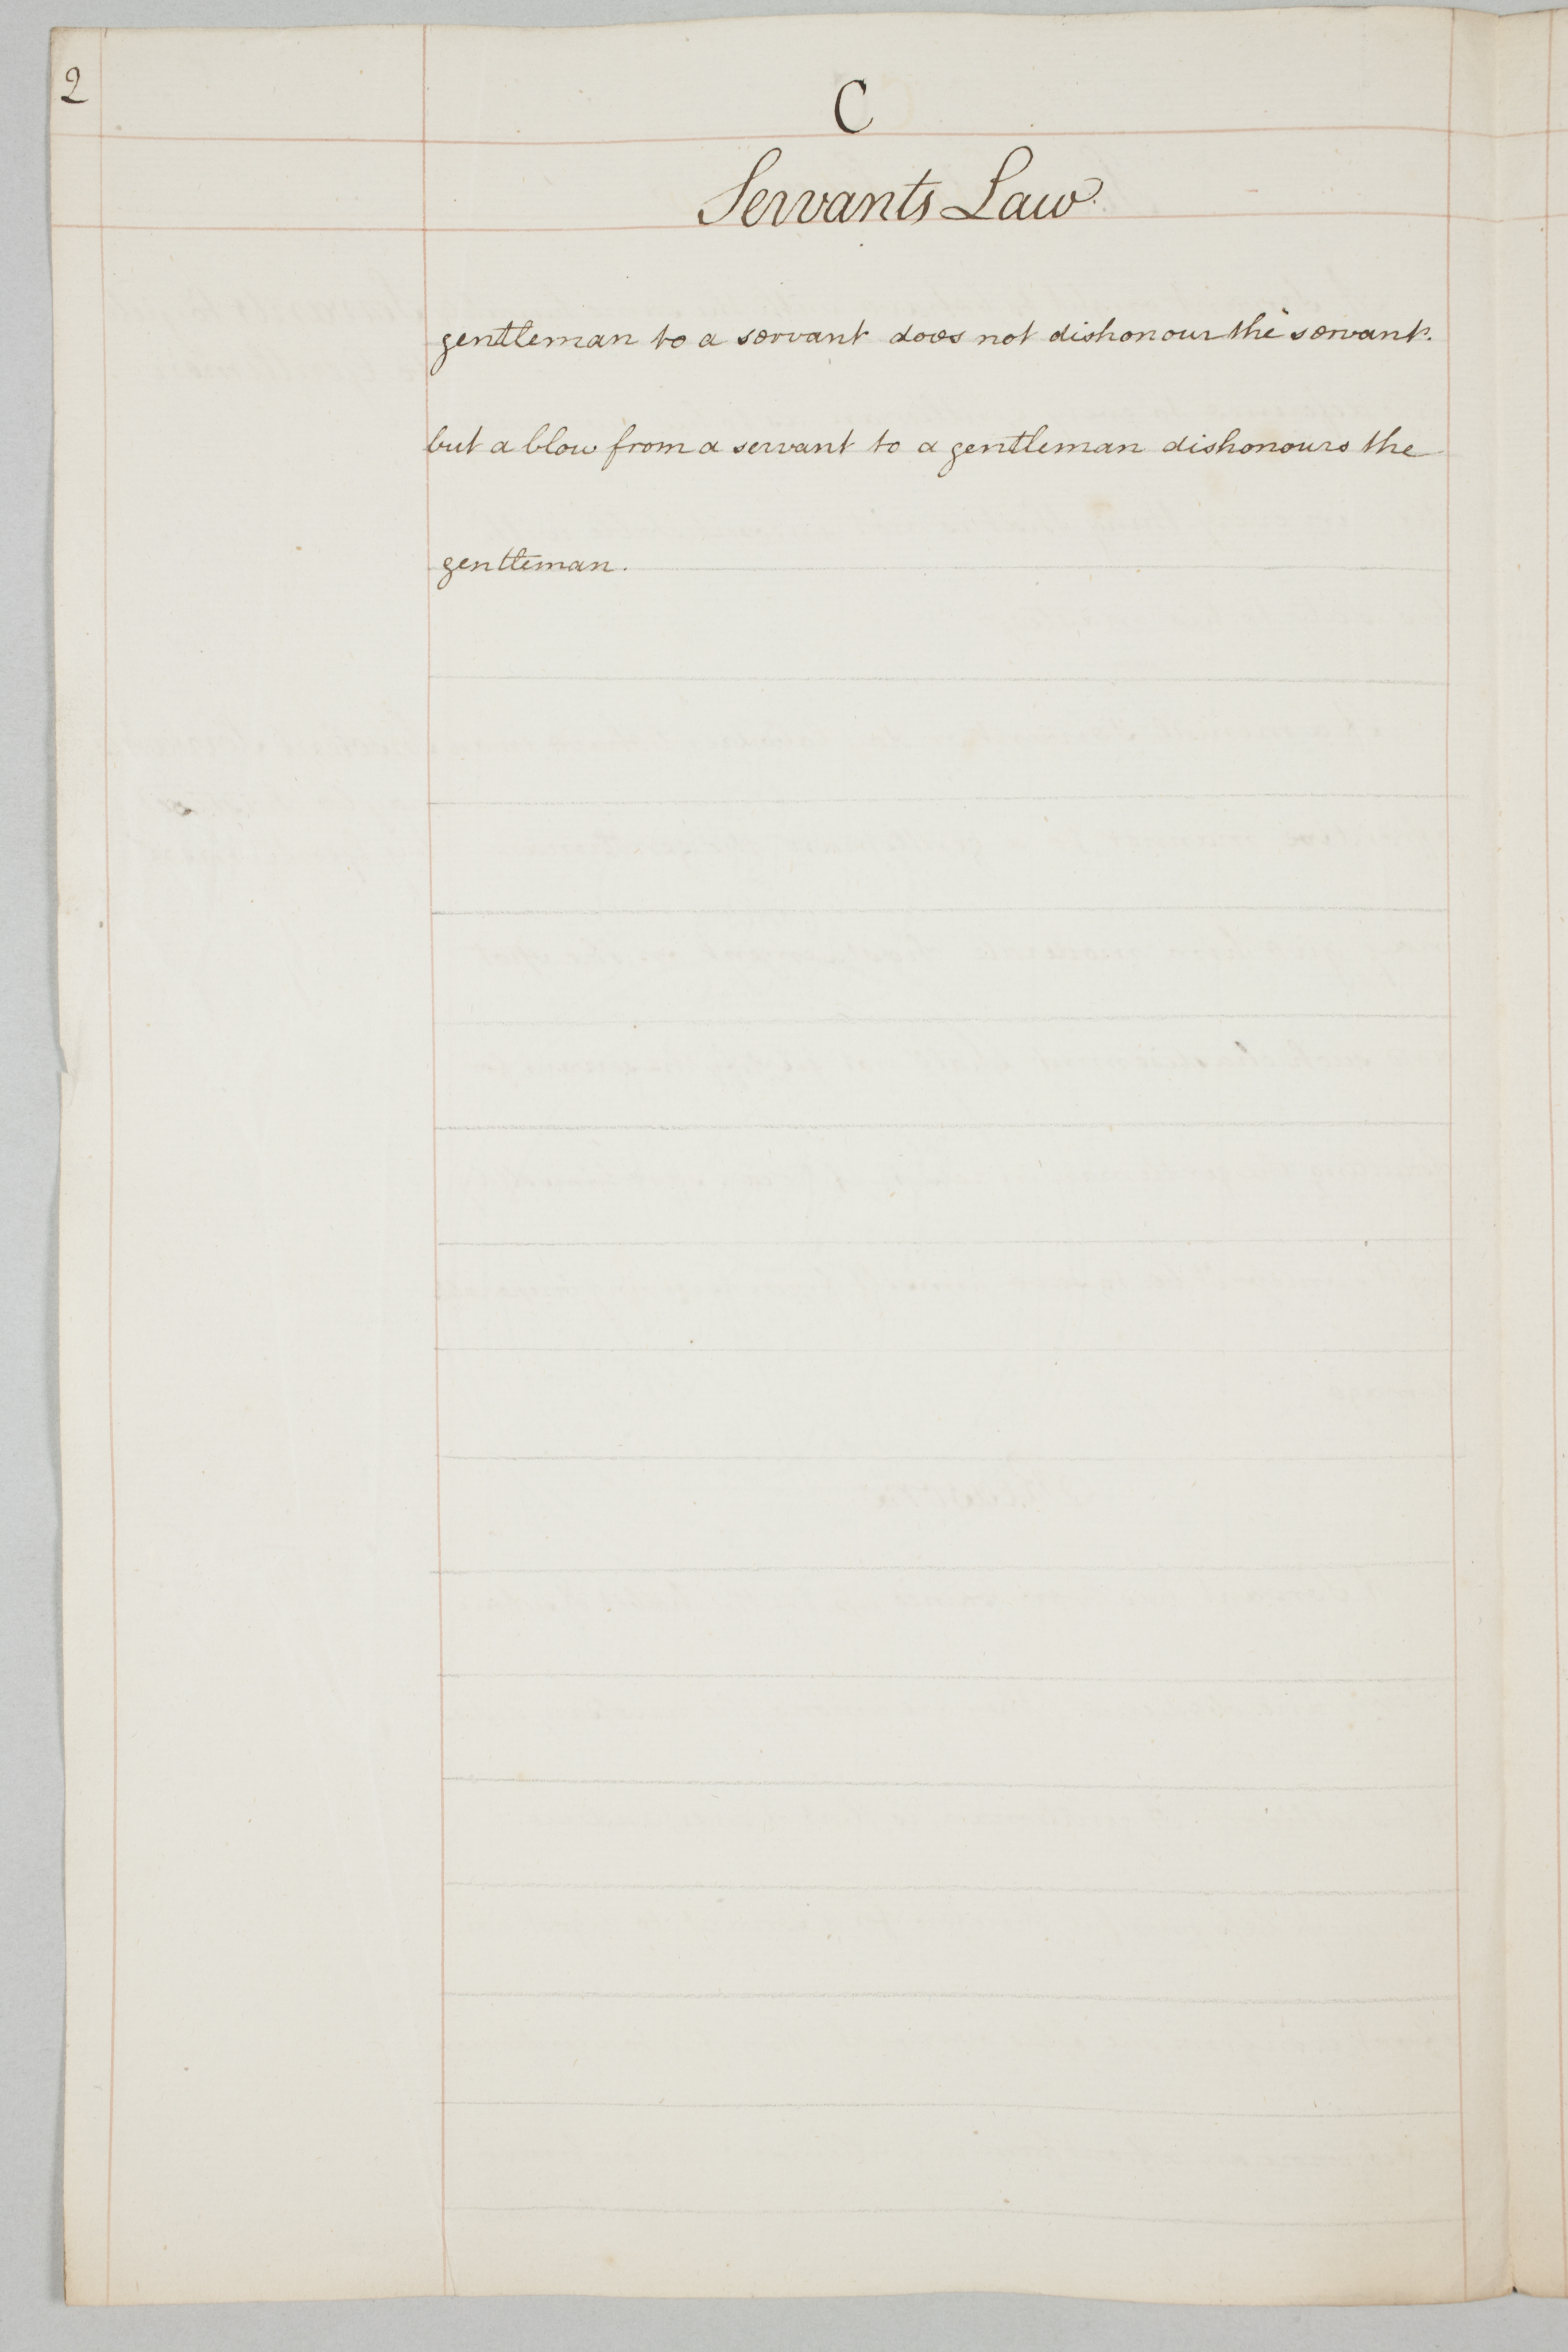 2
C
Servants Law.
gentleman to a servant does not dishonour the servant.
but a blow from a servant to a gentleman dishonours the
gentleman.